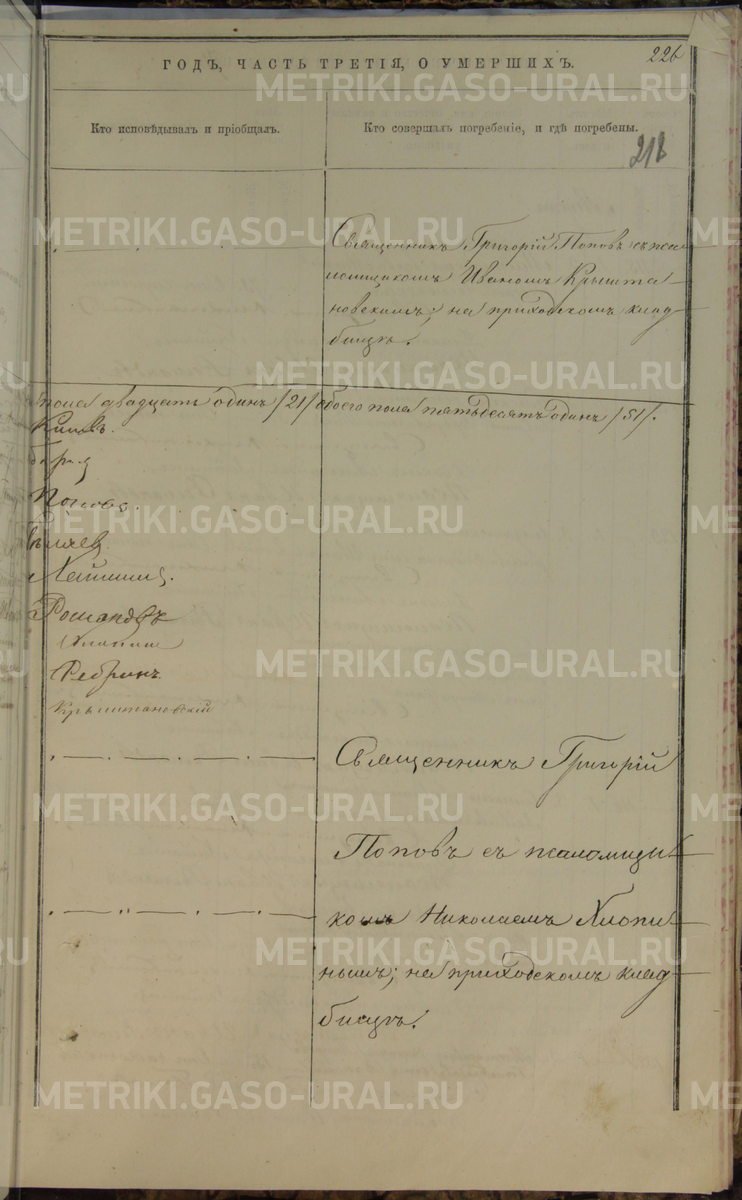 226
ГОДЪ, ЧАСТЬ ТРЕТІЯ, О УМЕРШИХЪ.
Кто исповѣдывалъ и пріобщалъ.
Кто совершалъ погребеніе, и гдѣ погребены.
Священникъ Григорій Поповъ съ псал
момщикомъ Иваномъ Крышта-
новскимъ; на приходскомъ клад
бищѣ.
пола двадцать одинъ /21/ обоего пола пятьдесятъ одинъ /51/.
Поповъ.
Крыштановскій
Священникъ Григорій
Поповъ съ псаломщи
комъ Николаемъ Хлопи
нымъ; на приходскомъ клад
бищѣ.
METRIKI.GASO-URAL.RU